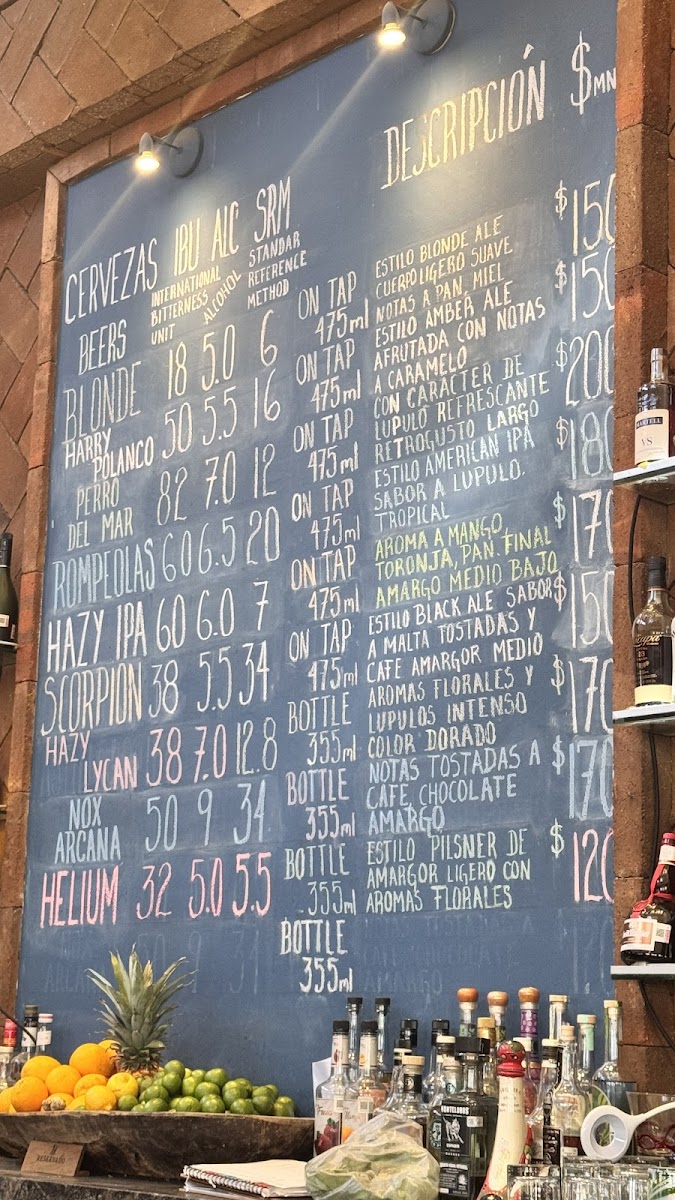 DESCRIPCIÓN $MN
CERVEZAS IBU ALC SRM
BEERS INTERNATIONAL BITTERNESS UNIT ALCOHOL STANDAR REFERENCE METHOD
BLONDE 18 5.0 6 ON TAP 475ml
ESTILO BLONDE ALE
CUERPO LIGERO SUAVE
NOTAS A PAN, MIEL
$150
HARRY POLANCO 50 5.5 16 ON TAP 475ml
ESTILO AMBER ALE
AFRUTADA CON NOTAS
A CARAMELO
$150
PERRO DEL MAR 82 7.0 12 ON TAP 475ml
CON CARACTER DE
LUPULO REFRESCANTE
RETROGUSTO LARGO
$200
ROMPEOLAS 60 6.5 20 ON TAP 475ml
ESTILO AMERICAN IPA
SABOR A LUPULO,
TROPICAL
$180
HAZY IPA 60 6.0 7 ON TAP 475ml
AROMA A MANGO,
TORONJA, PAN. FINAL
AMARGO MEDIO BAJO
$170
SCORPION 38 5.5 34 ON TAP 475ml
ESTILO BLACK ALE SABOR
A MALTA TOSTADAS Y
CAFE AMARGOR MEDIO
$150
HAZY LYCAN 38 7.0 12.8 BOTTLE 355ml
AROMAS FLORALES Y
LUPULOS INTENSO
COLOR DORADO
$170
NOX ARCANA 50 9 34 BOTTLE 355ml
NOTAS TOSTADAS A
CAFE, CHOCOLATE
AMARGO
$170
HELIUM 32 5.0 5.5 BOTTLE 355ml
ESTILO PILSNER DE
AMARGOR LIGERO CON
AROMAS FLORALES
$120
BOTTLE 355ml
RESERVADO